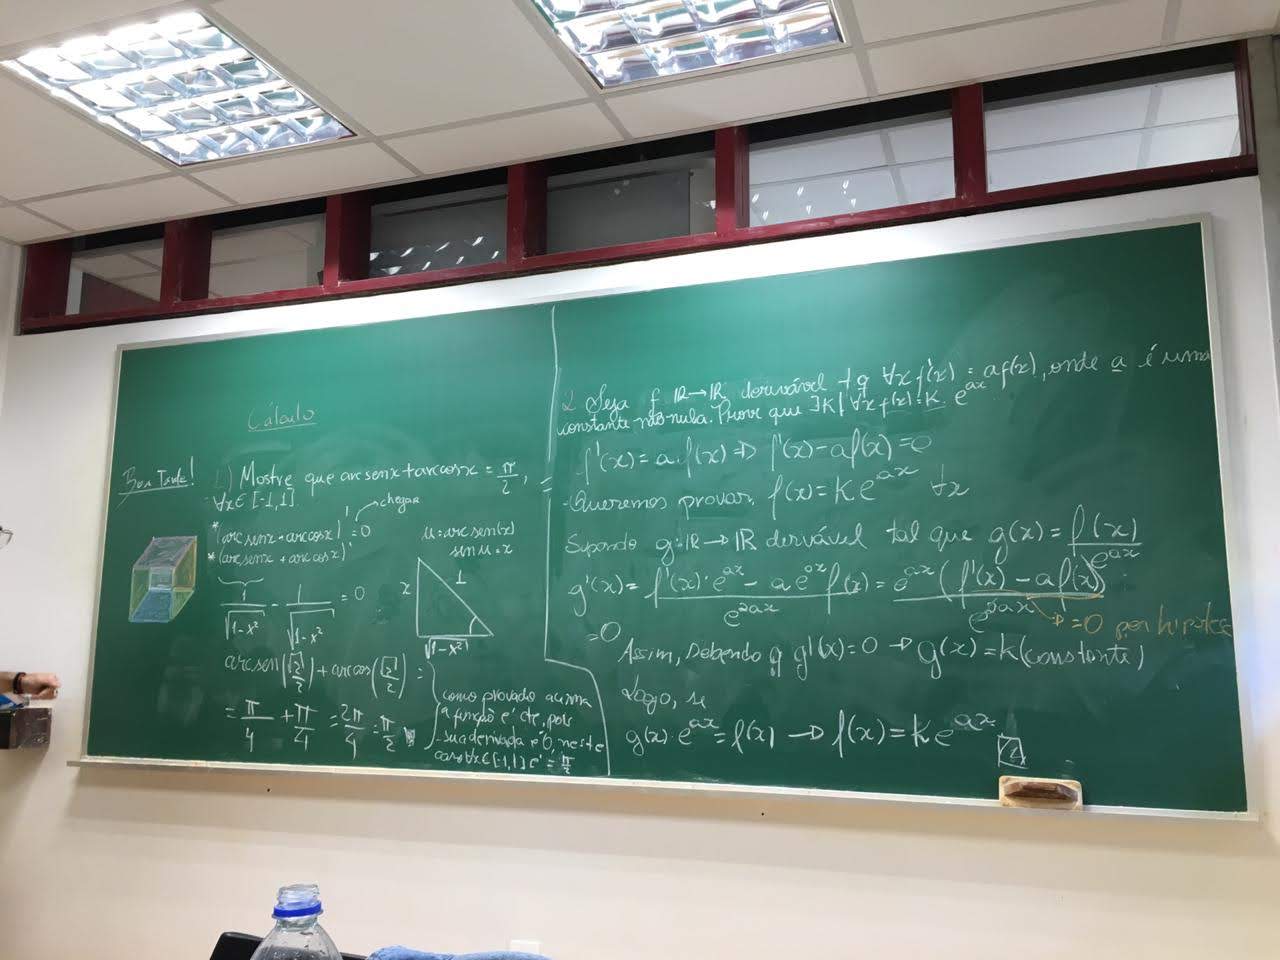 Cálculo
Boa Tarde!
1.) Mostre que arcsenx + arccosx = π/2,
∀x ∈ [-1,1].
chegar
* (arcsenx + arccosx)' = 0
* (arcsenx + arccosx)'
u = arcsen(x)
sinu = x
1/√(1-x²) - 1/√(1-x²) = 0
x
1
√(1-x²)
arcsen(√2/2) + arccos(√2/2) =
= π/4 + π/4 = 2π/4 = π/2
como provado acima
a função é cte, pois
sua derivada é 0, neste
caso ∀x ∈ [-1,1] é = π/2
2. Seja f: ℝ→ℝ derivável tq ∀x f'(x) = af(x), onde a é uma
constante não-nula. Prove que ∃K | ∀x f(x) = K. e^ax
f'(x) = a.f(x) ⇒ f'(x) - af(x) = 0
- Queremos provar, f(x) = Ke^ax ∀x
Supondo g: ℝ→ℝ derivável tal que g(x) = f(x)/e^ax
g'(x) = (f'(x)·e^ax - ae^ax f(x))/e^2ax = e^ax (f'(x) - af(x))/e^2ax
→ = 0 por hipótese
= 0
Assim, Sabendo q g'(x) = 0 → g(x) = k (constante)
Logo, se
g(x) e^ax = f(x) → f(x) = Ke^ax